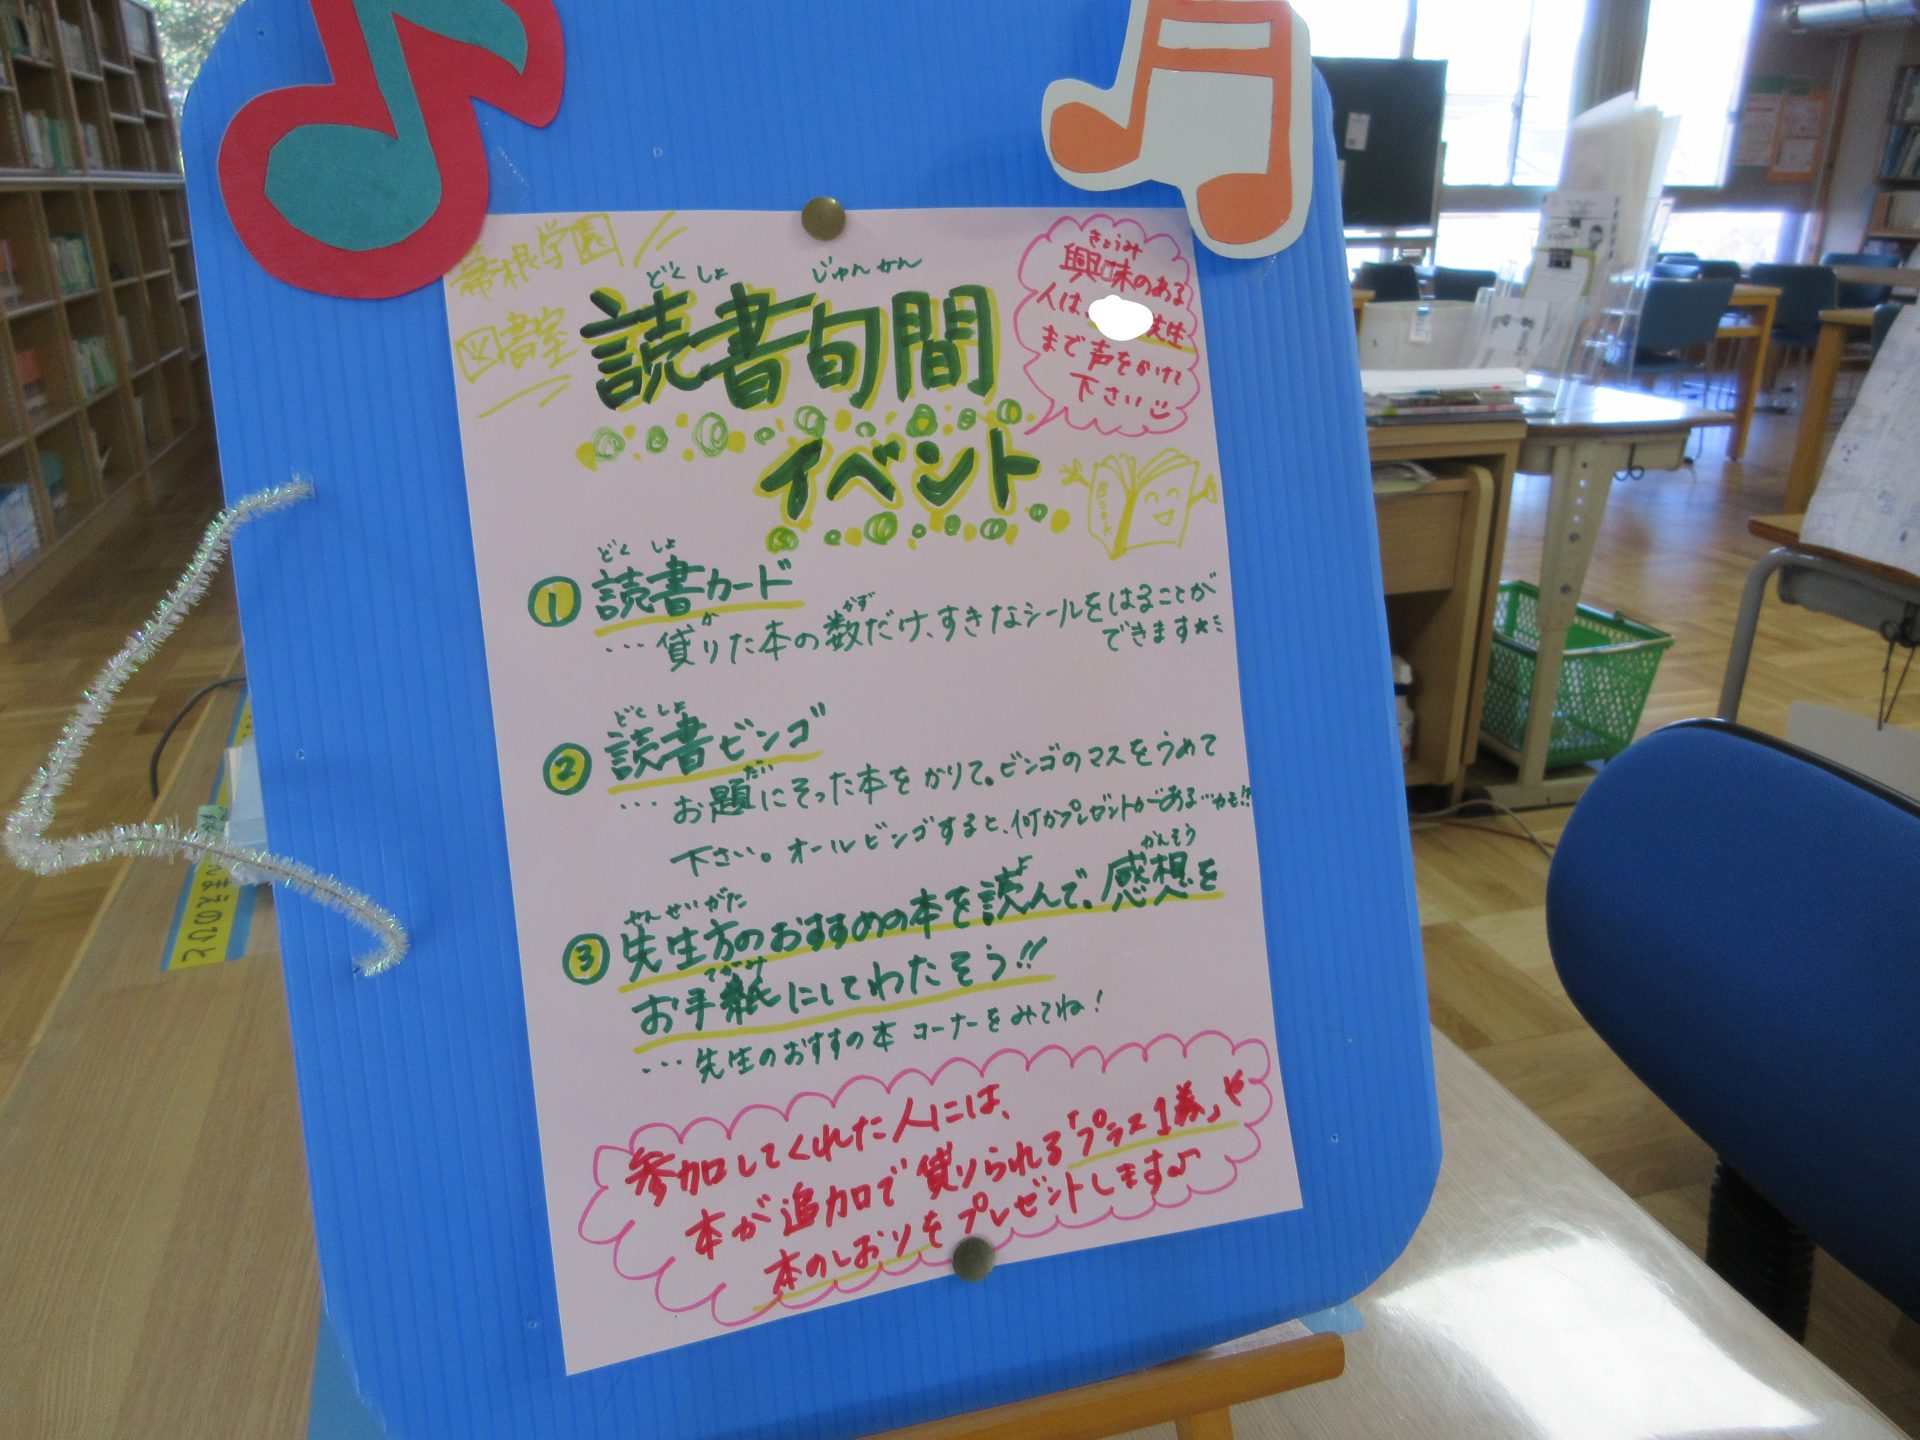 学園
図書室
どくしょ じゅんかん
読書旬間
イベント
きょうみ
興味のある
人は、 先生
まで声をかけて
下さい
Book
どくしょ
① 読書カード
か かず
…貸りた本の数だけ、すきなシールをはることが
できます
どくしょ
② 読書ビンゴ
だい
…お題にそった本をかりて。ビンゴのマスをうめて
下さい。オールビンゴすると、何かプレゼントがある…かも!!
せんせいがた よ かんそう
③ 先生方のおすすめの本を読んで、感想を
てがみ
お手紙にしてわたそう!!
…先生のおすすの本 コーナーをみてね!
参加してくれた人には、
本が追加で貸りられる「プラス1券」や
本のしおりをプレゼントします♪
まえのひと